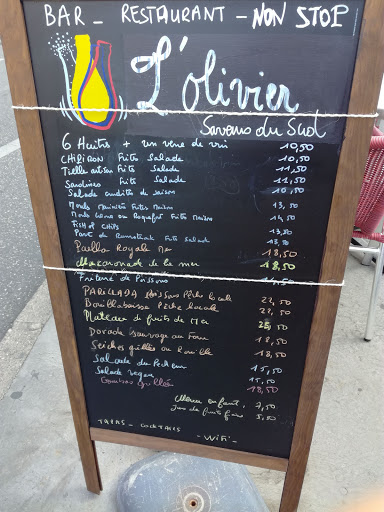 BAR - RESTAURANT - NON STOP
L'olivier
Saveurs du Sud
6 Huitres + un verre de vin 10,50
CHIPIRON Frites Salade 10,50
Tielle artisan Frites Salade 11,50
Sardines Frites Salade 11,50
Salade crudités de saison 10,50
Moules Marinière Frites Maison 13,50
Moules Crème ou Roquefort Frites Maison 14,50
FISH & CHIPS 13,50
Pavé de Rumsteak Frites Salade 13,50
Paella Royale Mer 18,50
Macaronade de la mer 18,50
Friture de Poissons
PARILLADA Poissons Pêche locale 22,50
Bouillabaisse Pêche locale 22,50
Plateau de fruits de Mer 25,50
Dorade sauvage au Four 18,50
Seiches grillées ou Rouille 18,50
Salade du Pêcheur 15,50
Salade vegan 15,50
Gambas Grillées 18,50
Menu enfant 7,50
Jus de fruits frais 5,50
TAPAS - COCKTAILS - WiFi -